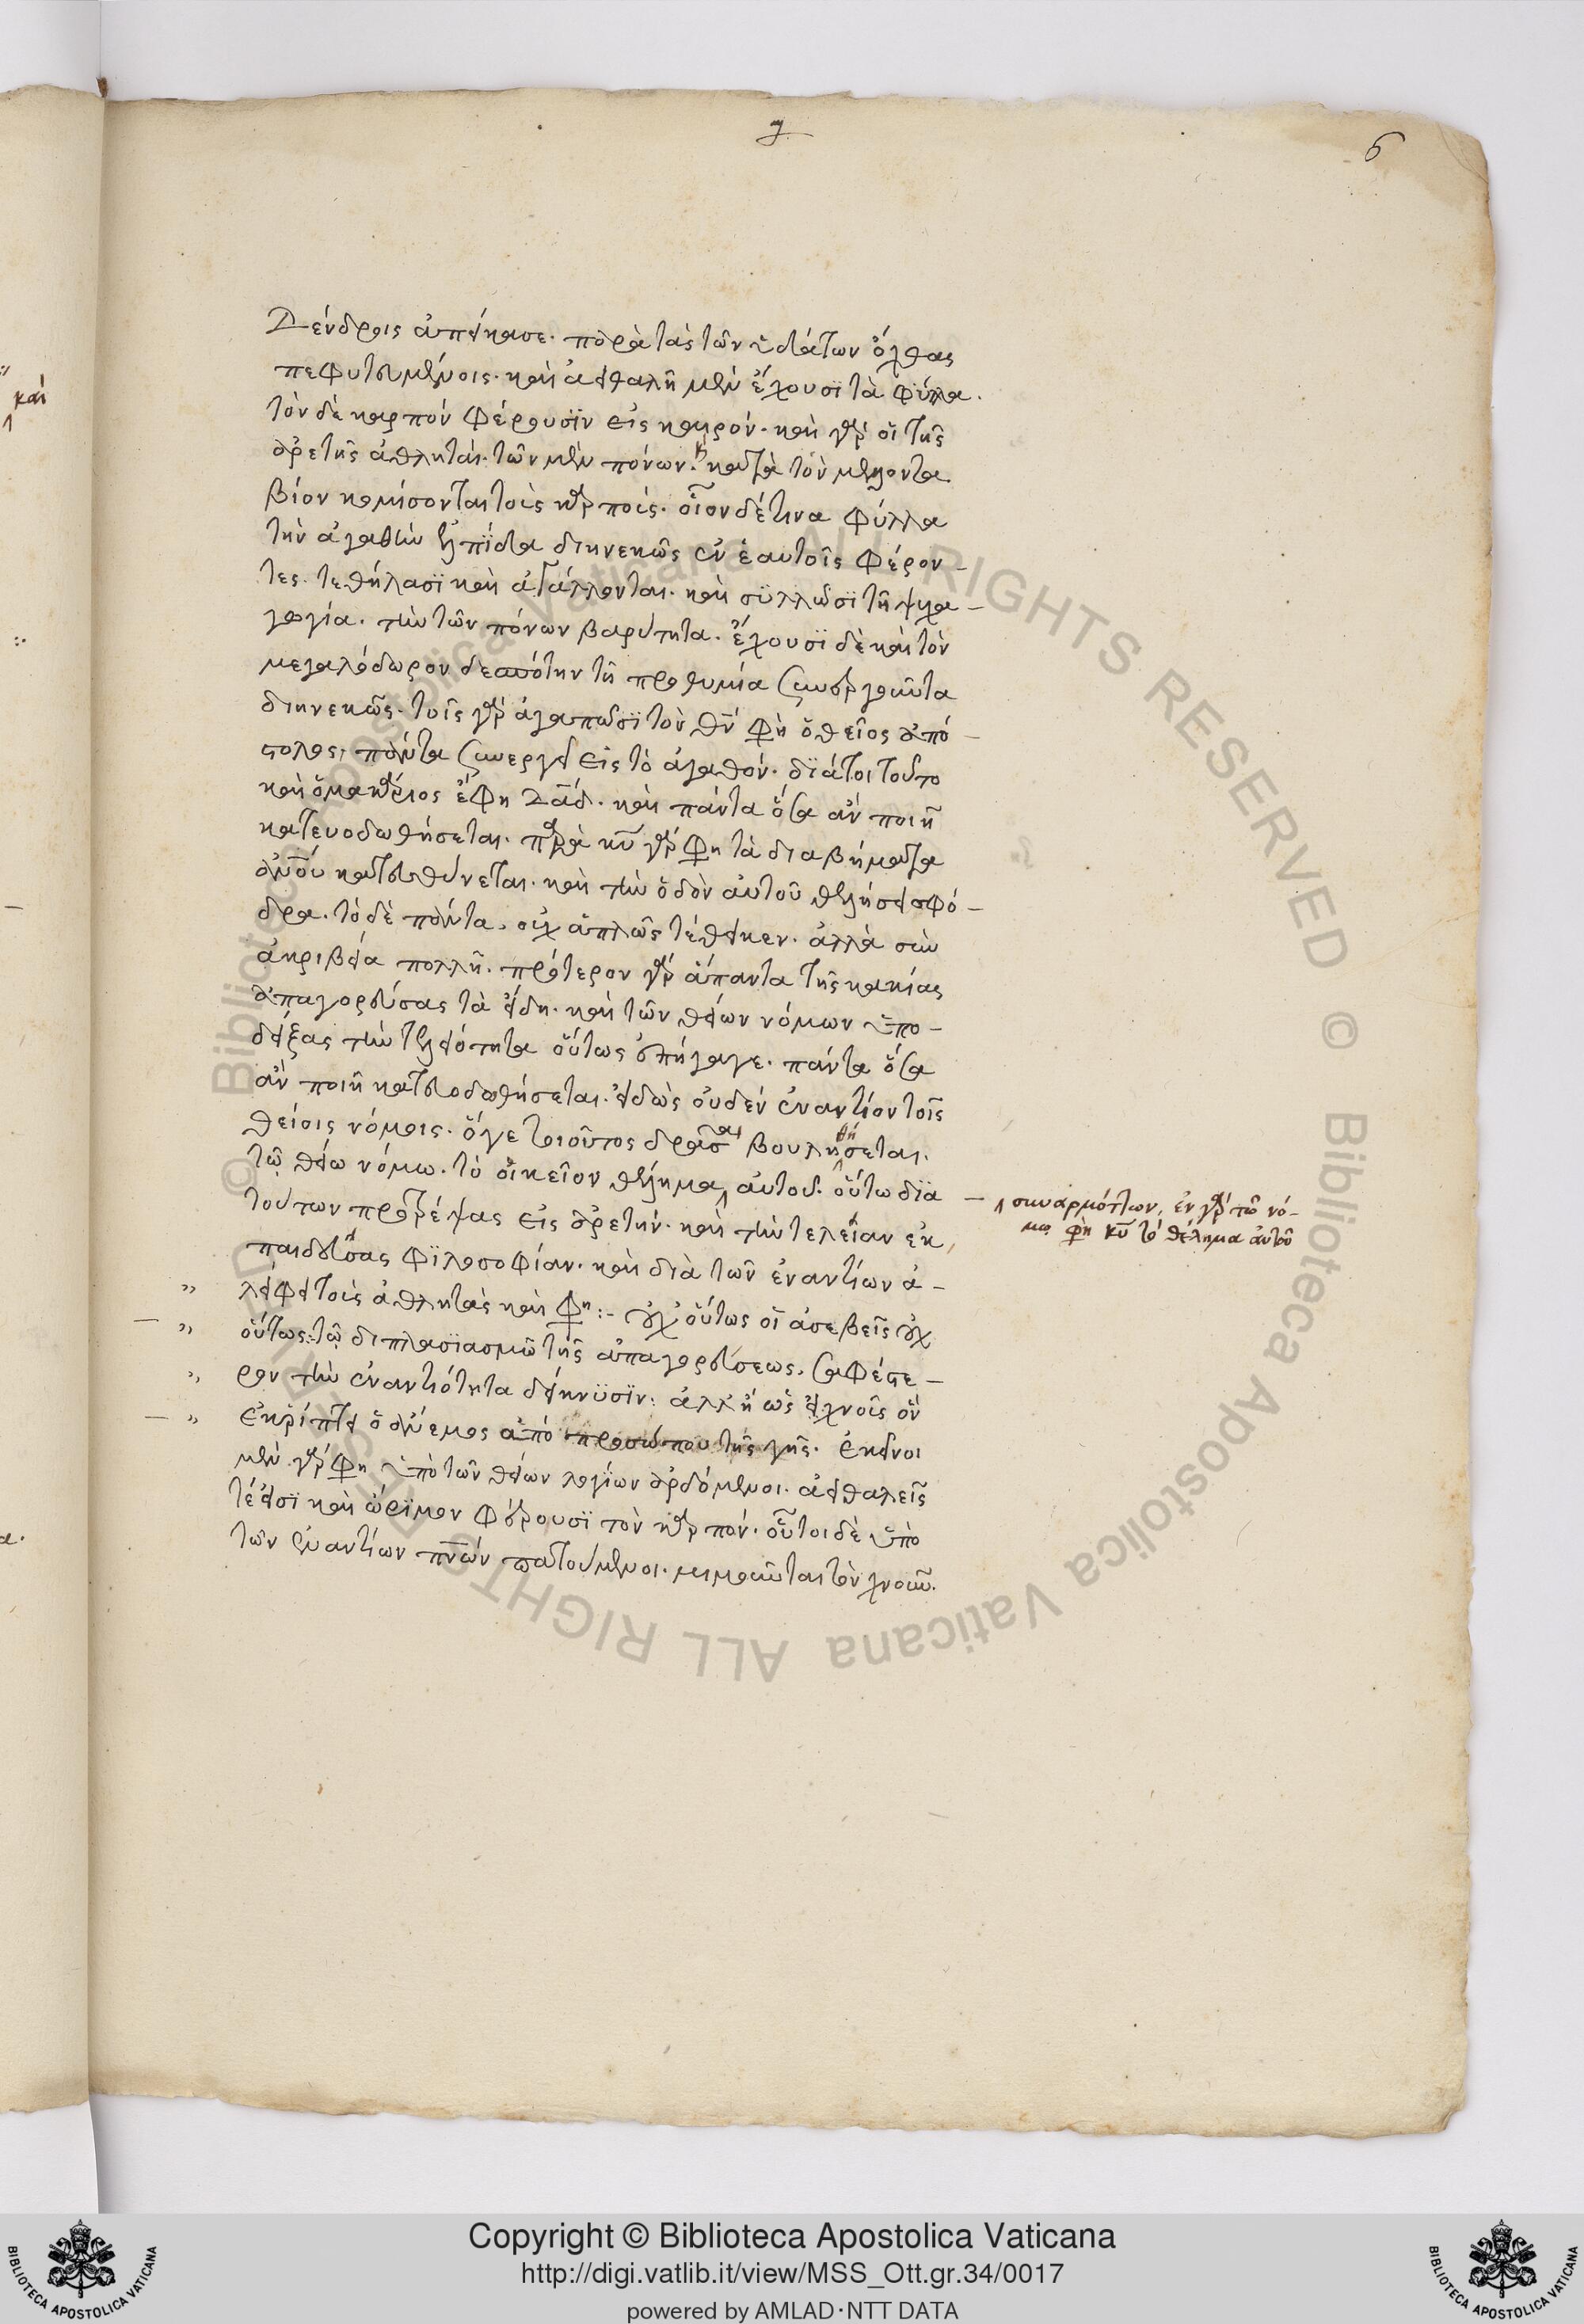 γ
6
Δένδροις ἀπείκασε. παρὰ τὰς τῶν ὑδάτων ὄχθας
πεφυτευμένοις. καὶ ἀειθαλῆ μὲν ἔχουσϊ τὰ φύλλα.
τὸν δὲ καρπὸν φέρουσϊν εἰς καιρόν. καὶ γὰρ οἱ τῆς
ἀρετῆς ἀθληταὶ. τῶν μὲν πόνων. κατὰ τὸν μέλλοντα
βίον κομίσονται τοὺς καρποὺς. οἷον δέ τινα φύλλα
τὴν ἀγαθὴν ἐλπίδα διηνεκῶς ἐν ἑαυτοῖς φέρον-
τες. τεθήλασϊ καὶ ἀγάλλονται. καὶ τῆ ψυχα-
γωγία. τὴν τῶν πόνων βαρύτητα. ἔχουσϊ δὲ καὶ τὸν
μεγαλόδωρον δεσπότην τῆ προθυμία συνεργοῦντα
διηνεκῶς. τοῖς γὰρ ἀγαπῶσϊ τὸν θν̄ φη ὁ θεῖος ἀπό-
στολος, πάντα συνεργεῖ εἰς τὸ ἀγαθόν. δϊάτοι τοῦτο
καὶ ὁ μακάριος ἔφη δᾱδ. καὶ πάντα ὅσα ἂν ποιῆ
κατευοδωθήσεται. παρὰ κῡ γάρ φη τὰ διαβήματα
ἀνοῦ κατευθύνεται. καὶ τὴν ὁδὸν αὐτοῦ θελήσει σφό-
δρα. τὸ δὲ πάντα. οὐχ ἁπλῶς τέθεικεν. ἀλλὰ σὺν
ἀκριβεία πολλῆ. πρότερον γὰρ ἅπαντα τῆς κακίας
ἀπαγορεύσας τὰ εἴδη. καὶ τῶν θείων νόμων ὑπο-
δείξας τὴν τελειότητα οὕτως ἐπήγαγε. πάντα ὅσα
ἂν ποιῆ κατευοδωθήσεται. εἰδὼς οὐδὲν ἐναντίον τοῖς
θείοις νόμοις. ὅγε τοιοῦτος δρᾶσαι βουληθήσεται.
τῶ θείω νόμω. τὸ οἰκεῖον θέλημα αὐτοῦ. οὕτω δϊὰ
συναρμόττων, ἐν γὰρ τῶ νό-
μω φη κῡ τὸ θέλημα αὐτοῦ
τούτων προτρέψας εἰς ἀρετήν. καὶ τὴν τελείαν ἐκ
παιδεύσας φϊλοσοφίαν. καὶ διὰ τῶν ἐναντίων ἀ-
λείφει τοὺς ἀθλητὰς καὶ φη :- οὐχ οὕτως οἱ ἀσεβεῖς οὐχ
οὕτως: τῶ διπλασϊασμῶ τῆς ἀπαγορεύσεως. σαφέστε-
ρον τὴν ἐναντιότητα δείκνϋσϊν: ἀλλ' ἢ ὡς ὁ χνοῦς ὃν
ἐκρίπτει ὁ ἄνεμος ἀπὸ προσώπου τῆς γῆς. ἐκεῖνοι
μὲν γάρ φη ὑπὸ τῶν θείων λογίων ἀρδόμενοι. ἀειθαλεῖς
τέ εἰσϊ καὶ ὥρϊμον φέρουσϊ τὸν καρπόν. οὗτοι δὲ ὑπὸ
τῶν ἐναντίων πν̄ων μιμοῦνται τὸν χνοῦν.
καί
Copyright © Biblioteca Apostolica Vaticana
http://digi.vatlib.it/view/MSS_Ott.gr.34/0017
powered by AMLAD·NTT DATA
BIBLIOTECA APOSTOLICA VATICANA
BIBLIOTECA APOSTOLICA VATICANA
© Biblioteca Apostolica Vaticana ALL RIGHTS RESERVED © Biblioteca Apostolica Vaticana ALL RIGHTS RESERVED